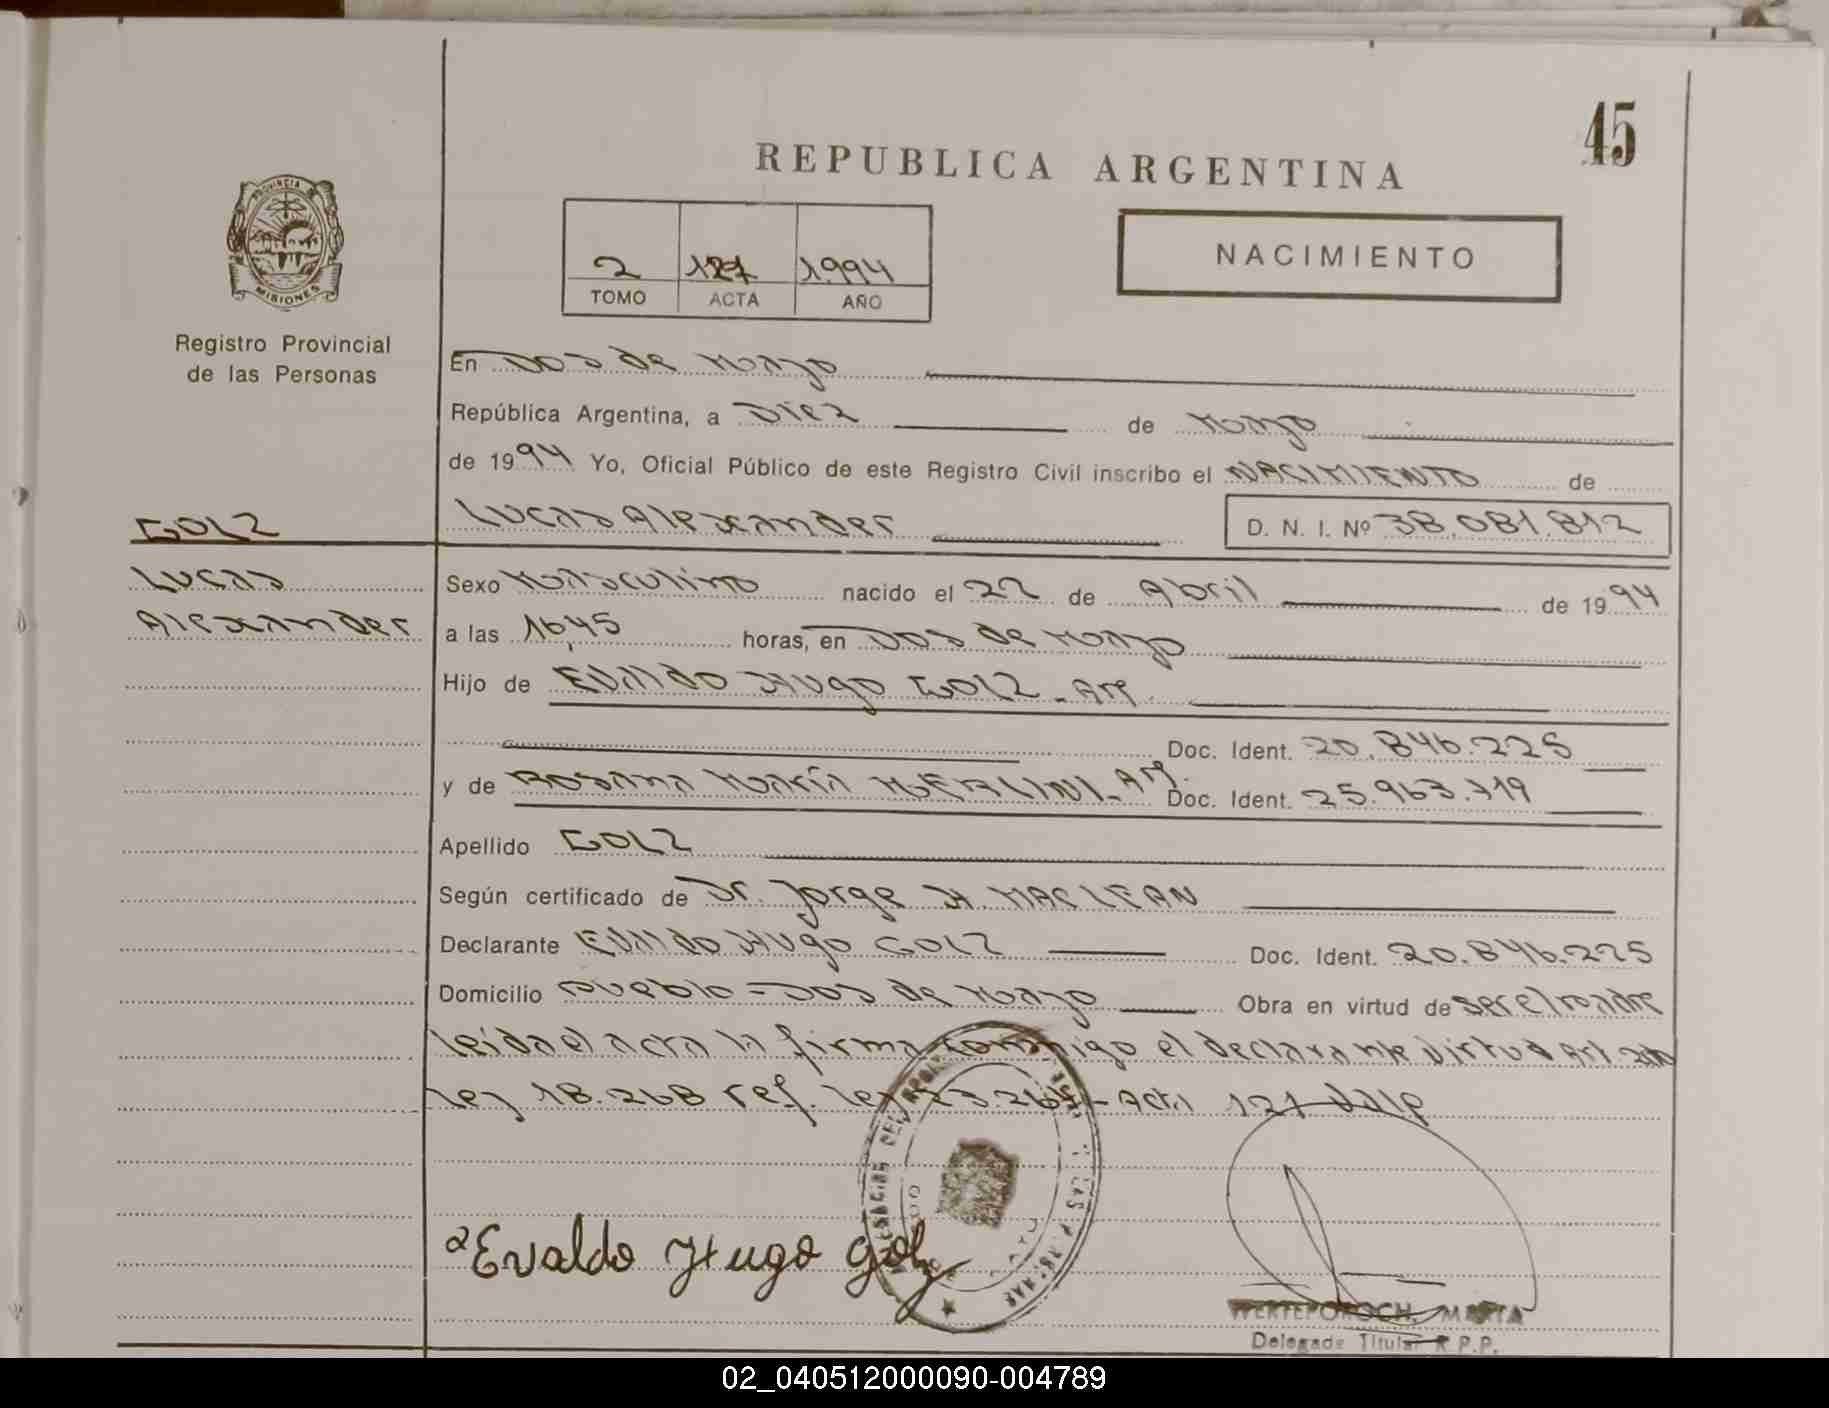 45
REPUBLICA ARGENTINA
PROVINCIA D
MISIONES
2 127 1.994
TOMO ACTA AÑO
NACIMIENTO
Registro Provincial
de las Personas
En Dos de Mayo
República Argentina, a Diez de Mayo
de 1994 Yo, Oficial Público de este Registro Civil inscribo el NACIMIENTO de
GOLZ
Lucas Alexander D. N. I. Nº 38.081.812
Lucas
Alexander
Sexo Masculino nacido el 22 de Abril de 1994
a las 16,45 horas, en Dos de Mayo
Hijo de Evaldo Hugo GOLZ - Arg.
Doc. Ident. 20.846.225
y de Rosana María MOERLINI - Arg. Doc. Ident. 25.963.319
Apellido GOLZ
Según certificado de Dr. Jorge H. MAC LEAN
Declarante Evaldo Hugo GOLZ Doc. Ident. 20.846.225
Domicilio Pueblo - Dos de Mayo Obra en virtud de ser el padre
leida el acta la firma conmigo el declarante Virtud Art.
ley 18.268 ref. ley 23.264 - Acta 127 Vale
Evaldo Hugo Golz
WERTEPOROCH, MARTA
Delegada Titular R.P.P.
02_040512000090-004789